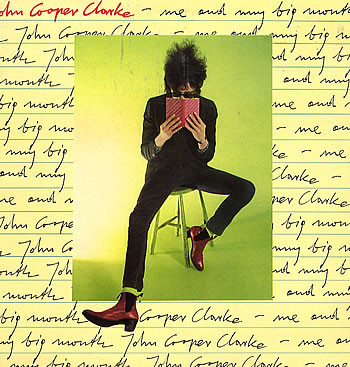 John Cooper Clarke - me and my big
John Cooper Clarke - me and my
big mouth - me
- me and Clarke
mouth and my
my big - me
my big - me
me and - me
- me and Clarke -
John big mouth
John and my
mouth and my big
me and and my
big mouth Cooper Clarke - me and
my big mouth John Cooper Clarke - me
my big mouth John Cooper Clarke